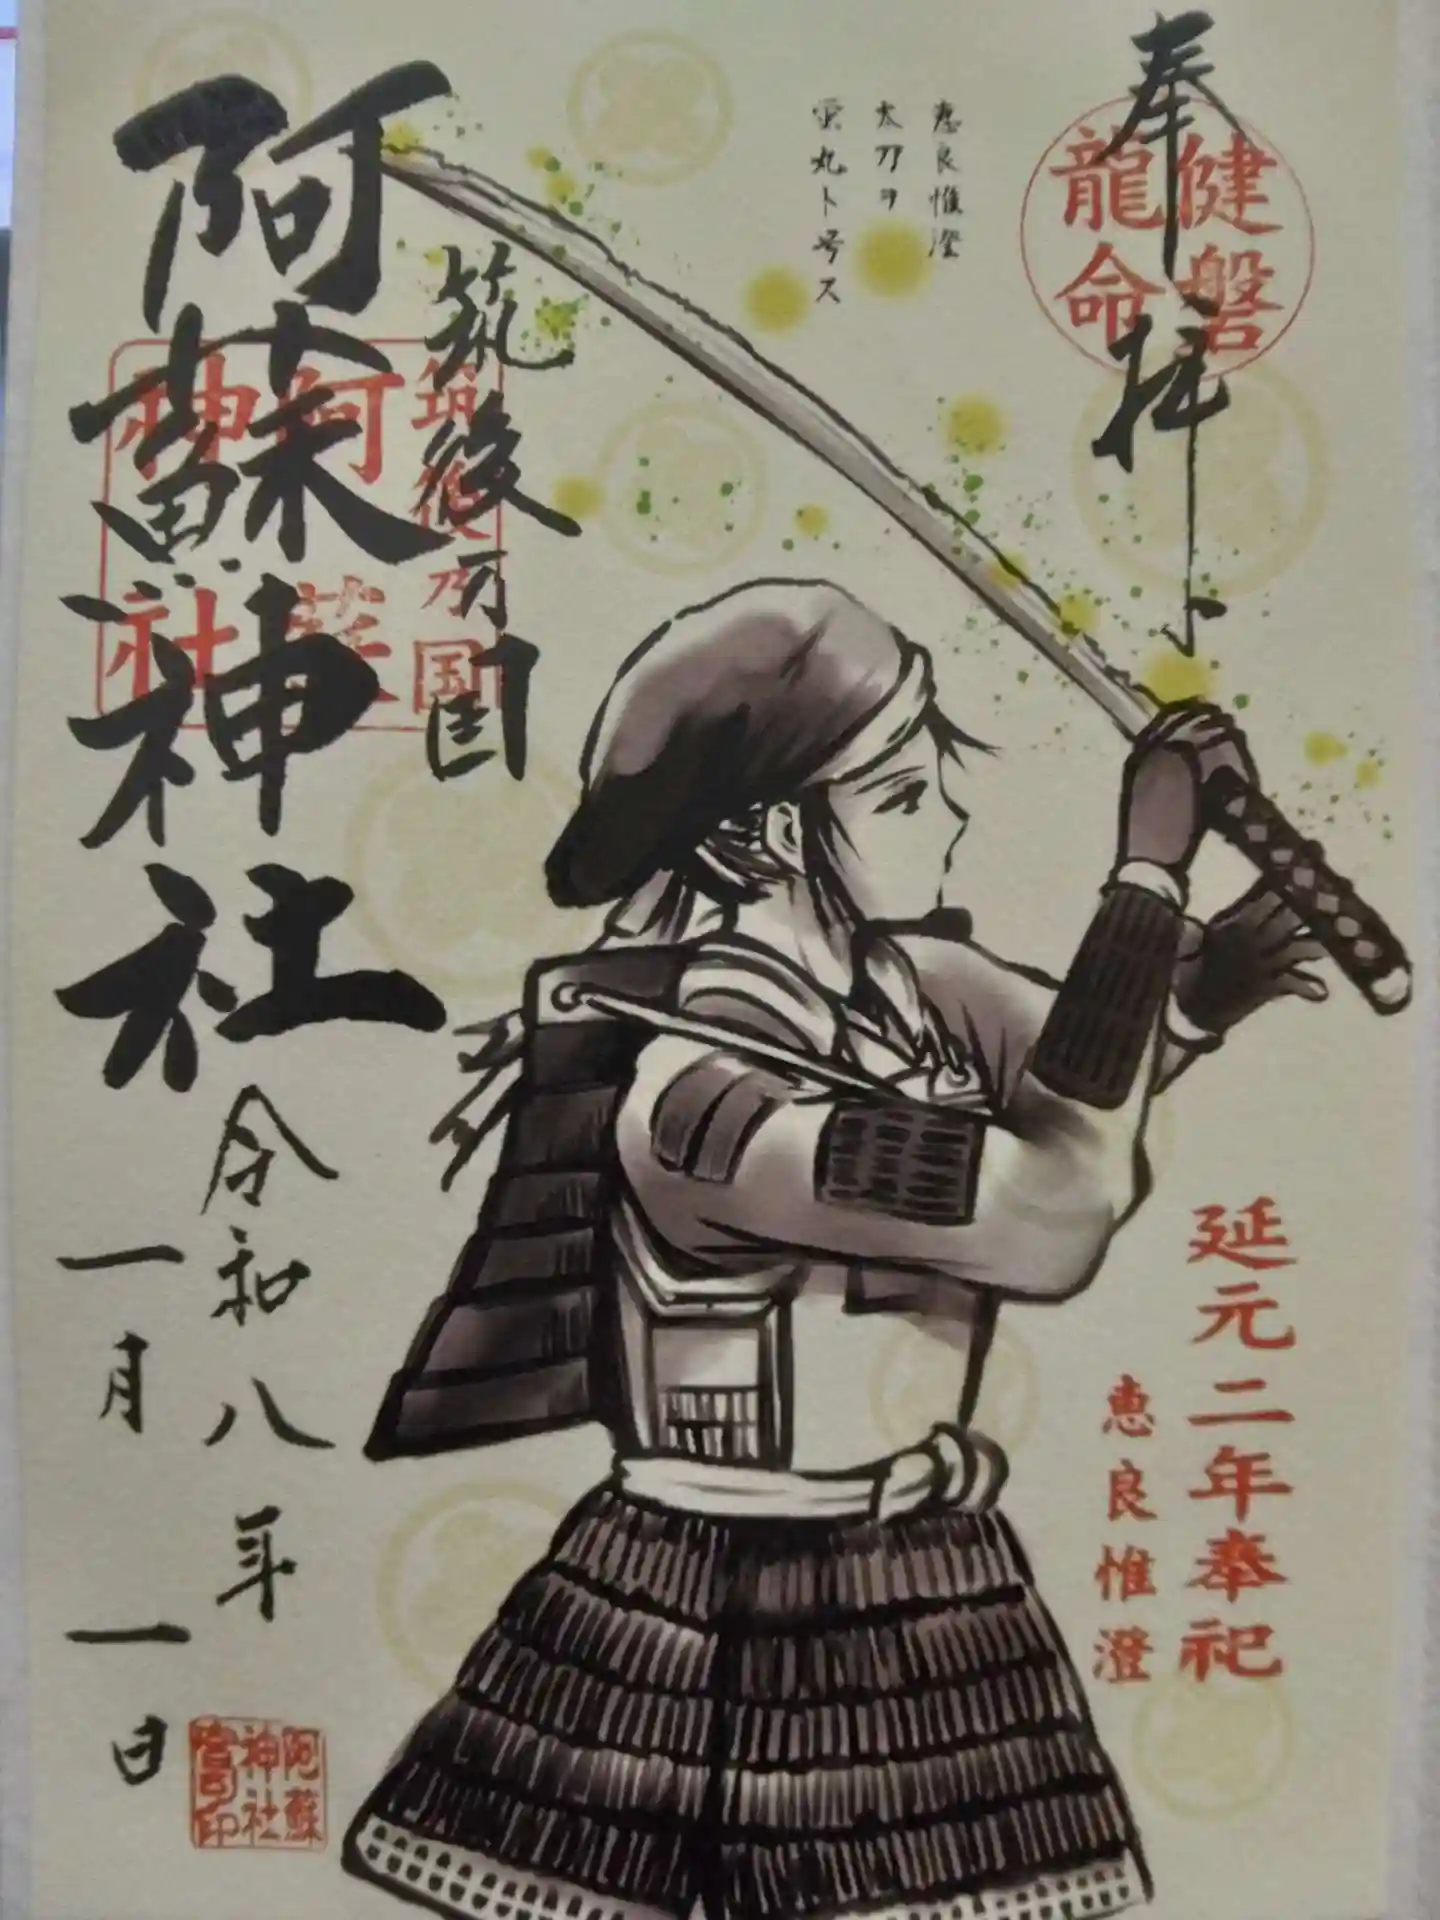 奉拝
健磐
龍命
恵良惟澄
太刀ヲ
蛍丸ト号ス
筑後乃国
阿蘇神社
筑後乃国
阿蘇
神社
延元二年奉祀
恵良惟澄
令和八年
一月一日
阿蘇
神社